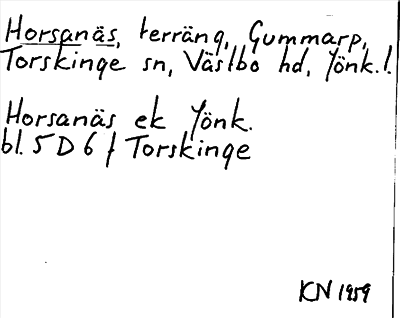 Horsanäs, terräng, Gummarp,
Torskinge sn, Västbo hd, Jönk.l.
Horsanäs ek Jönk.
bl. 5 D 6 f Torskinge
KN 1959